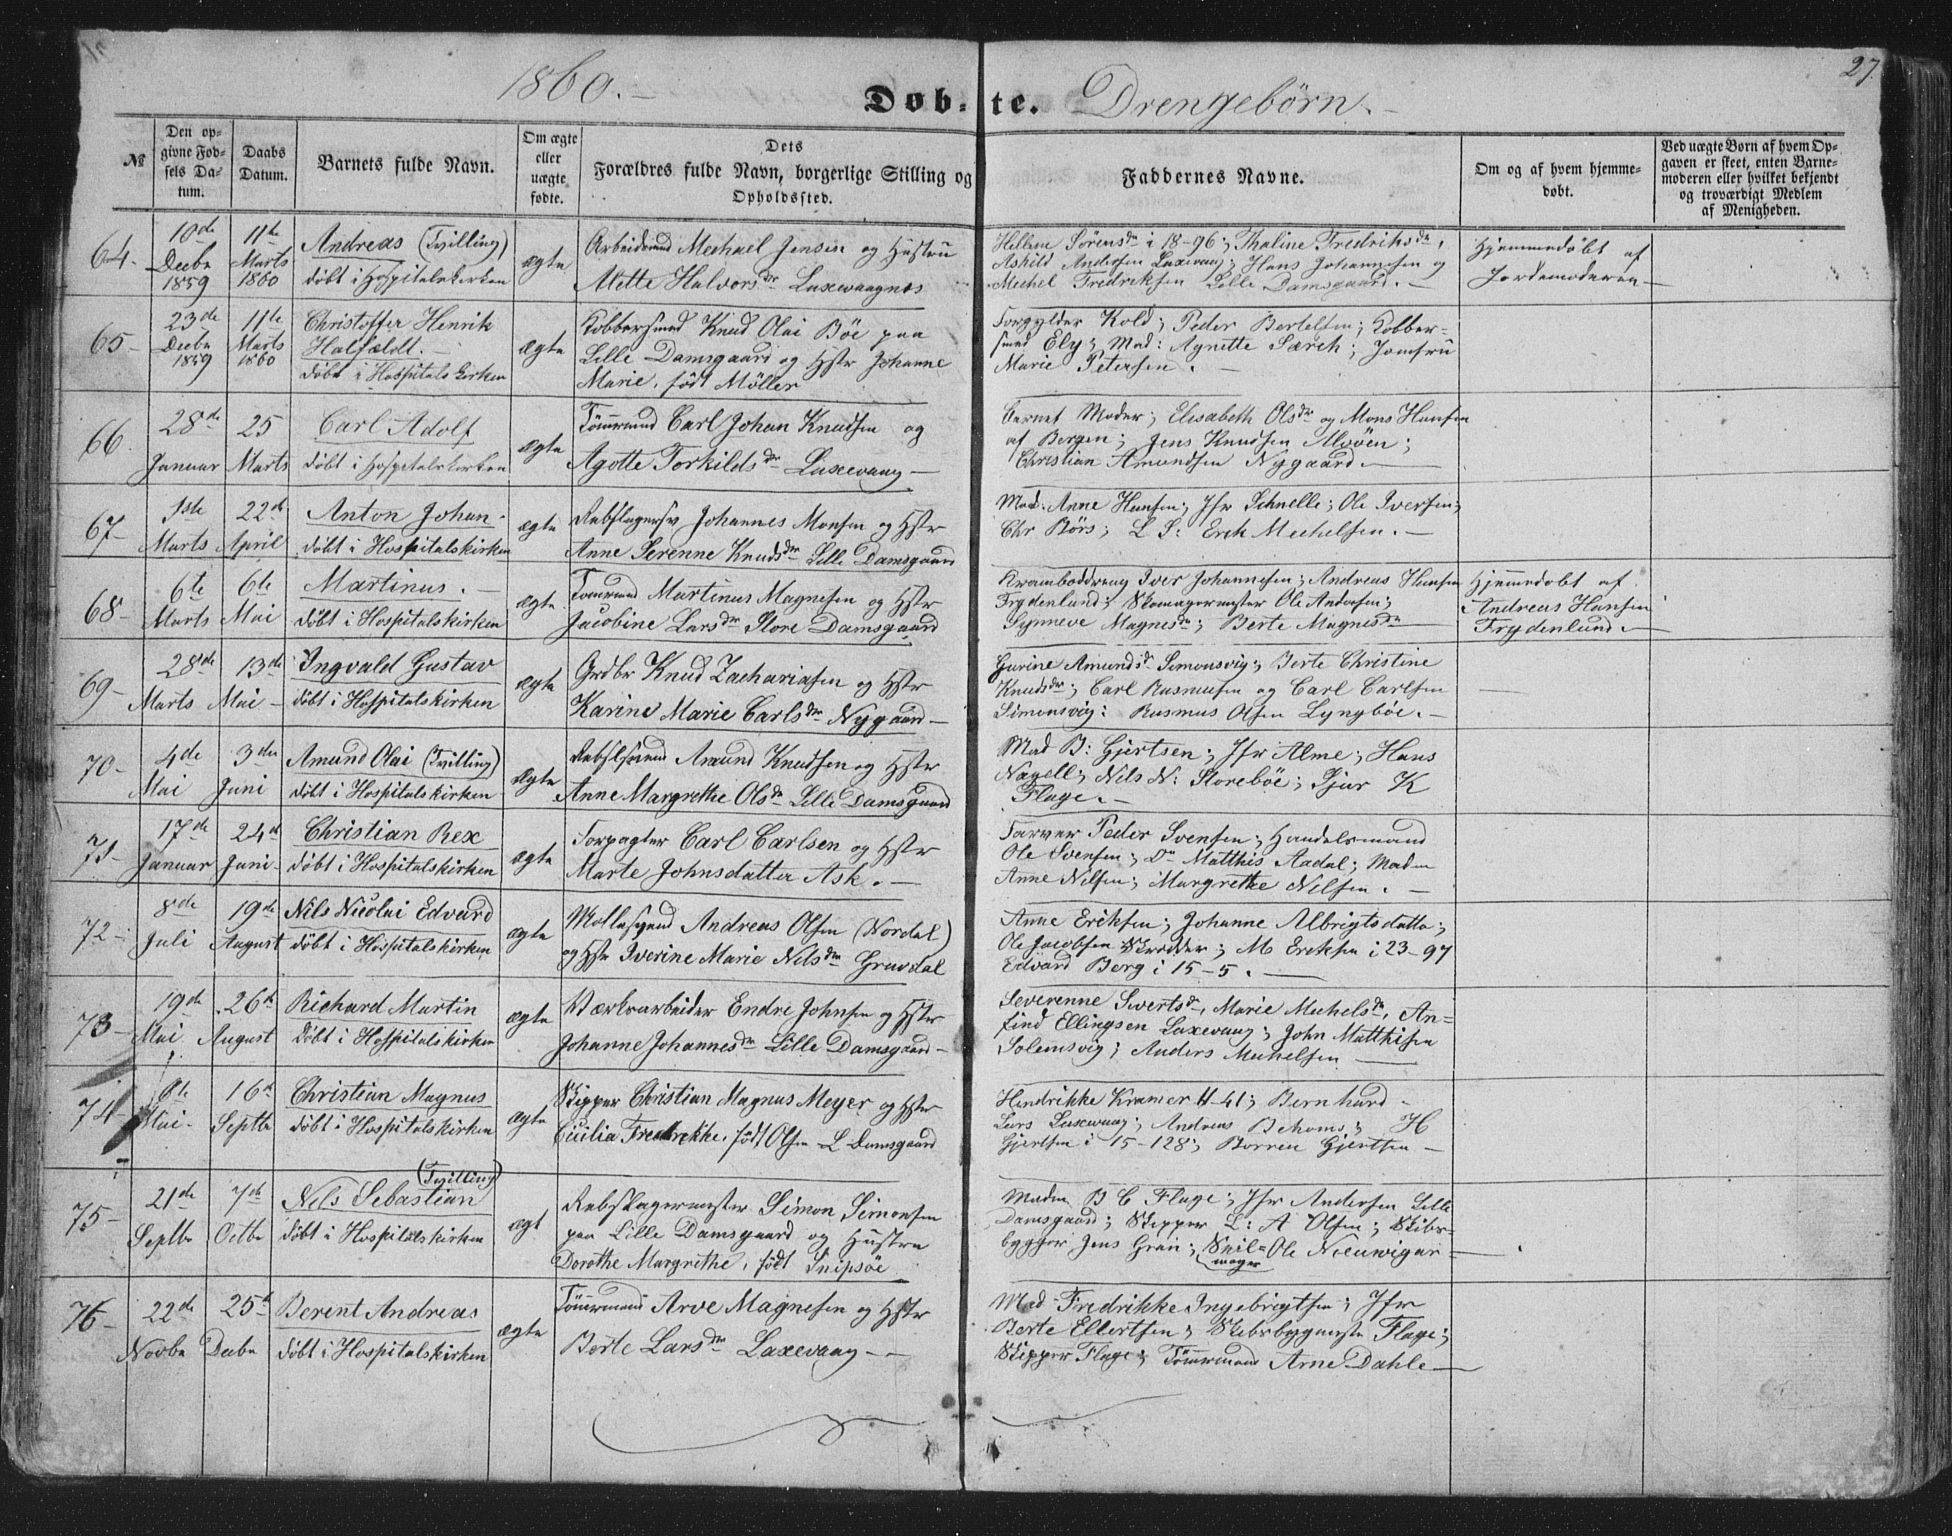 27
1860.-
Døb-te. Drengebørn.-
№
Den opgivne Fødsels Datum.
Daabs Datum.
Barnets fulde Navn.
Om ægte eller uægte fødte.
Dets Forældres fulde Navn, borgerlige Stilling og Opholdssted.
Faddernes Navne.
Om og af hvem hjemmedøbt.
Ved uægte Børn af hvem Opgaven er skeet, enten Barnemoderen eller hvilket bekjendt og troværdigt Medlem af Menigheden.
64- 10de Decbr 1859 11te Marts 1860
Andreas (Tvilling)
døbt i Hospitalskirken
ægte
Arbeidsmd Mechael Jensen og Hustru
Mette Halvorsdr Laxevaagnæs
Hellene Sørensdr i 18-96; Thaline Fredriksdr,
Askild Andersen Laxevaag; Hans Johannesen og
Mechel Fredriksen Lille Damsgaard.-
Hjemmedøbt af
Jordemoderen-
65- 23de Decbr 1859 11te Marts 1860
Christoffer Henrik
Halfældt.-
døbt i Hospitalskirken
ægte
Kobbersmed Knud Olai Bőe paa
Lille Damsgaard og Hstr Johanne
Marie, født Møller
Forgylder Kold; Peder Bertelsen; Kobber-
smed Ely; Mad: Agnette Særck; Jomfru
Marie Petersen.-
66. 28de Januar 25 Marts
Carl Adolf
døbt i Hospitalskirken
ægte
Tømrmd Carl Johan Knudsen og
Agotte Torkildsdr Laxevaag-
Barnet Moder; Elisabeth Olsdr og Mons Hansen
af Bergen; Jens Knudsen Alvøen;
Christian Amundsen Nygaard.-
67- 1ste Marts 22de April
Anton Johan.
døbt i Hospitalskirken
ægte
Rebslagersv Johannes Monsen og Hstr
Anne Serenne Knudsdr Lille Damsgaard
Mad: Anne Hansen; Jfr Schnelle; Ole Iversen;
Chr Børs; L S: Erek Mechelsen.-
68- 6te Marts 6te Mai
Martinus.-
døbt i Hospitalskirken
ægte
Tømrmd Martinus Magnesen og Hstr
Jacobine Larsdr Store Damsgaard
Kramboddreng Iver Johannesen; Andreas Hansen
Frydenlund; Skomagermester Ole Andersen;
Synneve Magnesdr; Berte Magnesdr
Hjemmedøbt af
Andreas Hansen
Frydenlund.-
69- 28de Marts 13de Mai-
Ingvald Gustav
døbt i Hospitalskirken
ægte
Grdbr Knud Zachariasen og Hstr
Karine Marie Carlsdr Nygaard-
Gurine Amundsdr Simonsvig; Berte Christine
Knudsdr; Carl Rasmusen og Carl Carlsen
Simonsvig: Rasmus Olsen Lyngbøe.-
70- 4de Mai 3die Juni
Amund Olai (Tvilling)
døbt i Hospitalskirken
ægte
Rebslsvend Amund Knudsen og Hstr
Anne Margrethe Olsdr Lille Damsgaard
Mad B: Gjertsen; Jfr Alme; Hans
Nagell; Nils N: Storebøe; Sjur K
Flage.-
71- 17de Januar 24de Juni-
Christian Rex
døbt i Hospitalskirken
ægte
Forpagter Carl Carlsen og Hstr
Marte Johnsdatter Ask.-
Farver Peder Svensen; Handelsmand
Ole Svensen; Do Matthis Aadal; Madm
Anne Nilsen; Margrethe Nilsen.-
72- 8de Juli 19de August
Nils Nicolai Edvard
døbt i Hospitalskirken
ægte
Møllesvend Andreas Olsen (Nordal)
og Hstr Iverine Marie Nilsdr Gravdal
Anne Eriksen; Johanne Albrigtsdatter;
Ole Jacobsen Skrædder; M Eriksen i 23-97
Edvard Berg i 15-5.-
73- 19de Mai 26de August
Richard Martin
døbt i Hospitalskirken
ægte
Værksarbeider Endre Johnsen og Hstr
Johanne Johannesdr Lille Damsgaard-
Severenne Sivertsdr, Marie Mechelsdr, An-
find Ellingsen Laxevaag; John Matthisen
Solemsvig; Anders Mechelsen-
74- 8de Mai- 16de Septbr
Christian Magnus
døbt i Hospitalskirken
ægte
Skipper Christian Magnus Meyer og Hstr
Cicilia Fredrikke, født Olsen L Damsgaard
Hendrikke Kramer 4-41; Bernhard-
Lars Laxevaag; Andreas Behoms; H
Gjertsen i 15-128; Borren Gjertsen-
75- 21de Septbr 7de Octbr
(Tvilling)
Nils Sebastian
døbt i Hospitalskirken
ægt
Rebslagermester Simon Simonsen
paa Lille Damsgaard og Hustru
Dorothe Margrethe, født Knipsøe
Madm B C Flage; Jfr Andersen Lille
Damsgaard; Skipper L: A Olsen; Skibs-
bygger Jens Gran; Seil- Ole Nieuwejaar-
mager
76- 22de Novbr 25de Decbr
Berent Andreas
døbt i Hospitalskirken
ægte
Tømrmand Arve Magnesen og Hstr
Berte Larsdr Laxevaag--
Mad- Fredrikke Ingebrigtsen; Jfr
Berte Ellertsen; Skibsbygmester Flage;
Skipper Flage; Tømrmand Arne Dahle-